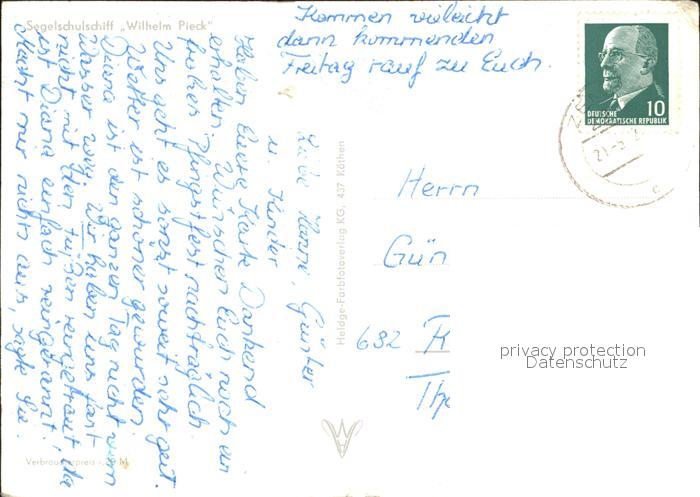 Segelschulschiff „Wilhelm Pieck"
Kommen vieleicht
dann kommenden
Freitag rauf zu Euch.
Liebe Hanni, Günter
u. Kinder
Haben Euere Karte Dankend
erhalten. Wünschen Euch noch ein
frohes Pfingstfest nachträglich
Uns geht es sonst soweit sehr gut.
Wetter ist schöner geworden.
Diana ist den ganzen Tag nicht vom
Wasser weg. Wir haben uns fast
nicht mit den Füßen reingetraut, da
ist Diana einfach reingerannt.
Macht mir nichts aus, sagte sie.
Verbraucherpreis -,20 M
Heldge-Farbfotoverlag KG, 437 Köthen
DEUTSCHE
DEMOKRATISCHE REPUBLIK
10
Herrn
Gün
682 R
Thü
privacy protection
Datenschutz